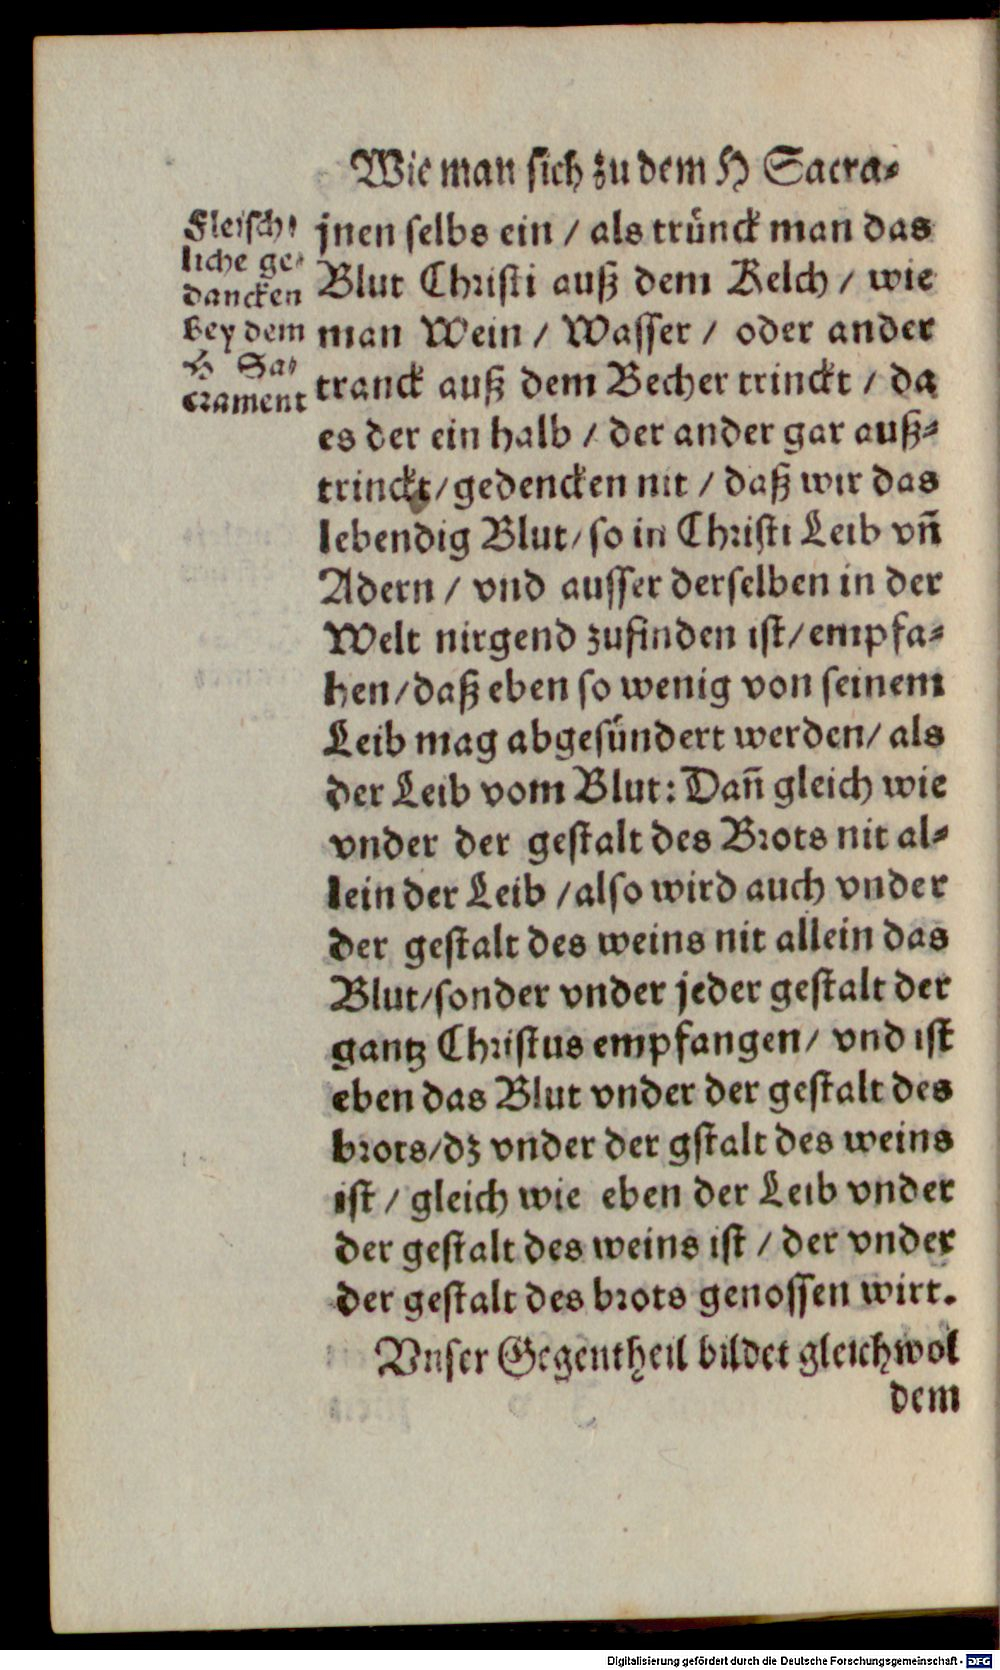 Wie man sich zu dem H Sacra-
Fleisch-
liche ge-
dancken
bey dem
H Sa-
crament
jnen selbs ein / als trünck man das
Blut Christi auß dem Kelch / wie
man Wein / Wasser / oder ander
tranck auß dem Becher trinckt / da
es der ein halb / der ander gar auß-
trinckt / gedencken nit / daß wir das
lebendig Blut / so in Christi Leib vn̄
Adern / vnd ausser derselben in der
Welt nirgend zufinden ist / empfa-
hen / daß eben so wenig von seinem
Leib mag abgesündert werden / als
der Leib vom Blut: Dan̄ gleich wie
vnder der gestalt des Brots nit al-
lein der Leib / also wird auch vnder
der gestalt des weins nit allein das
Blut / sonder vnder jeder gestalt der
gantz Christus empfangen / vnd ist
eben das Blut vnder der gestalt des
brots / dz vnder der gstalt des weins
ist / gleich wie eben der Leib vnder
der gestalt des weins ist / der vnder
der gestalt des brots genossen wirt.
Vnser Gegentheil bildet gleichwol
dem
Digitalisierung gefördert durch die Deutsche Forschungsgemeinschaft - DFG